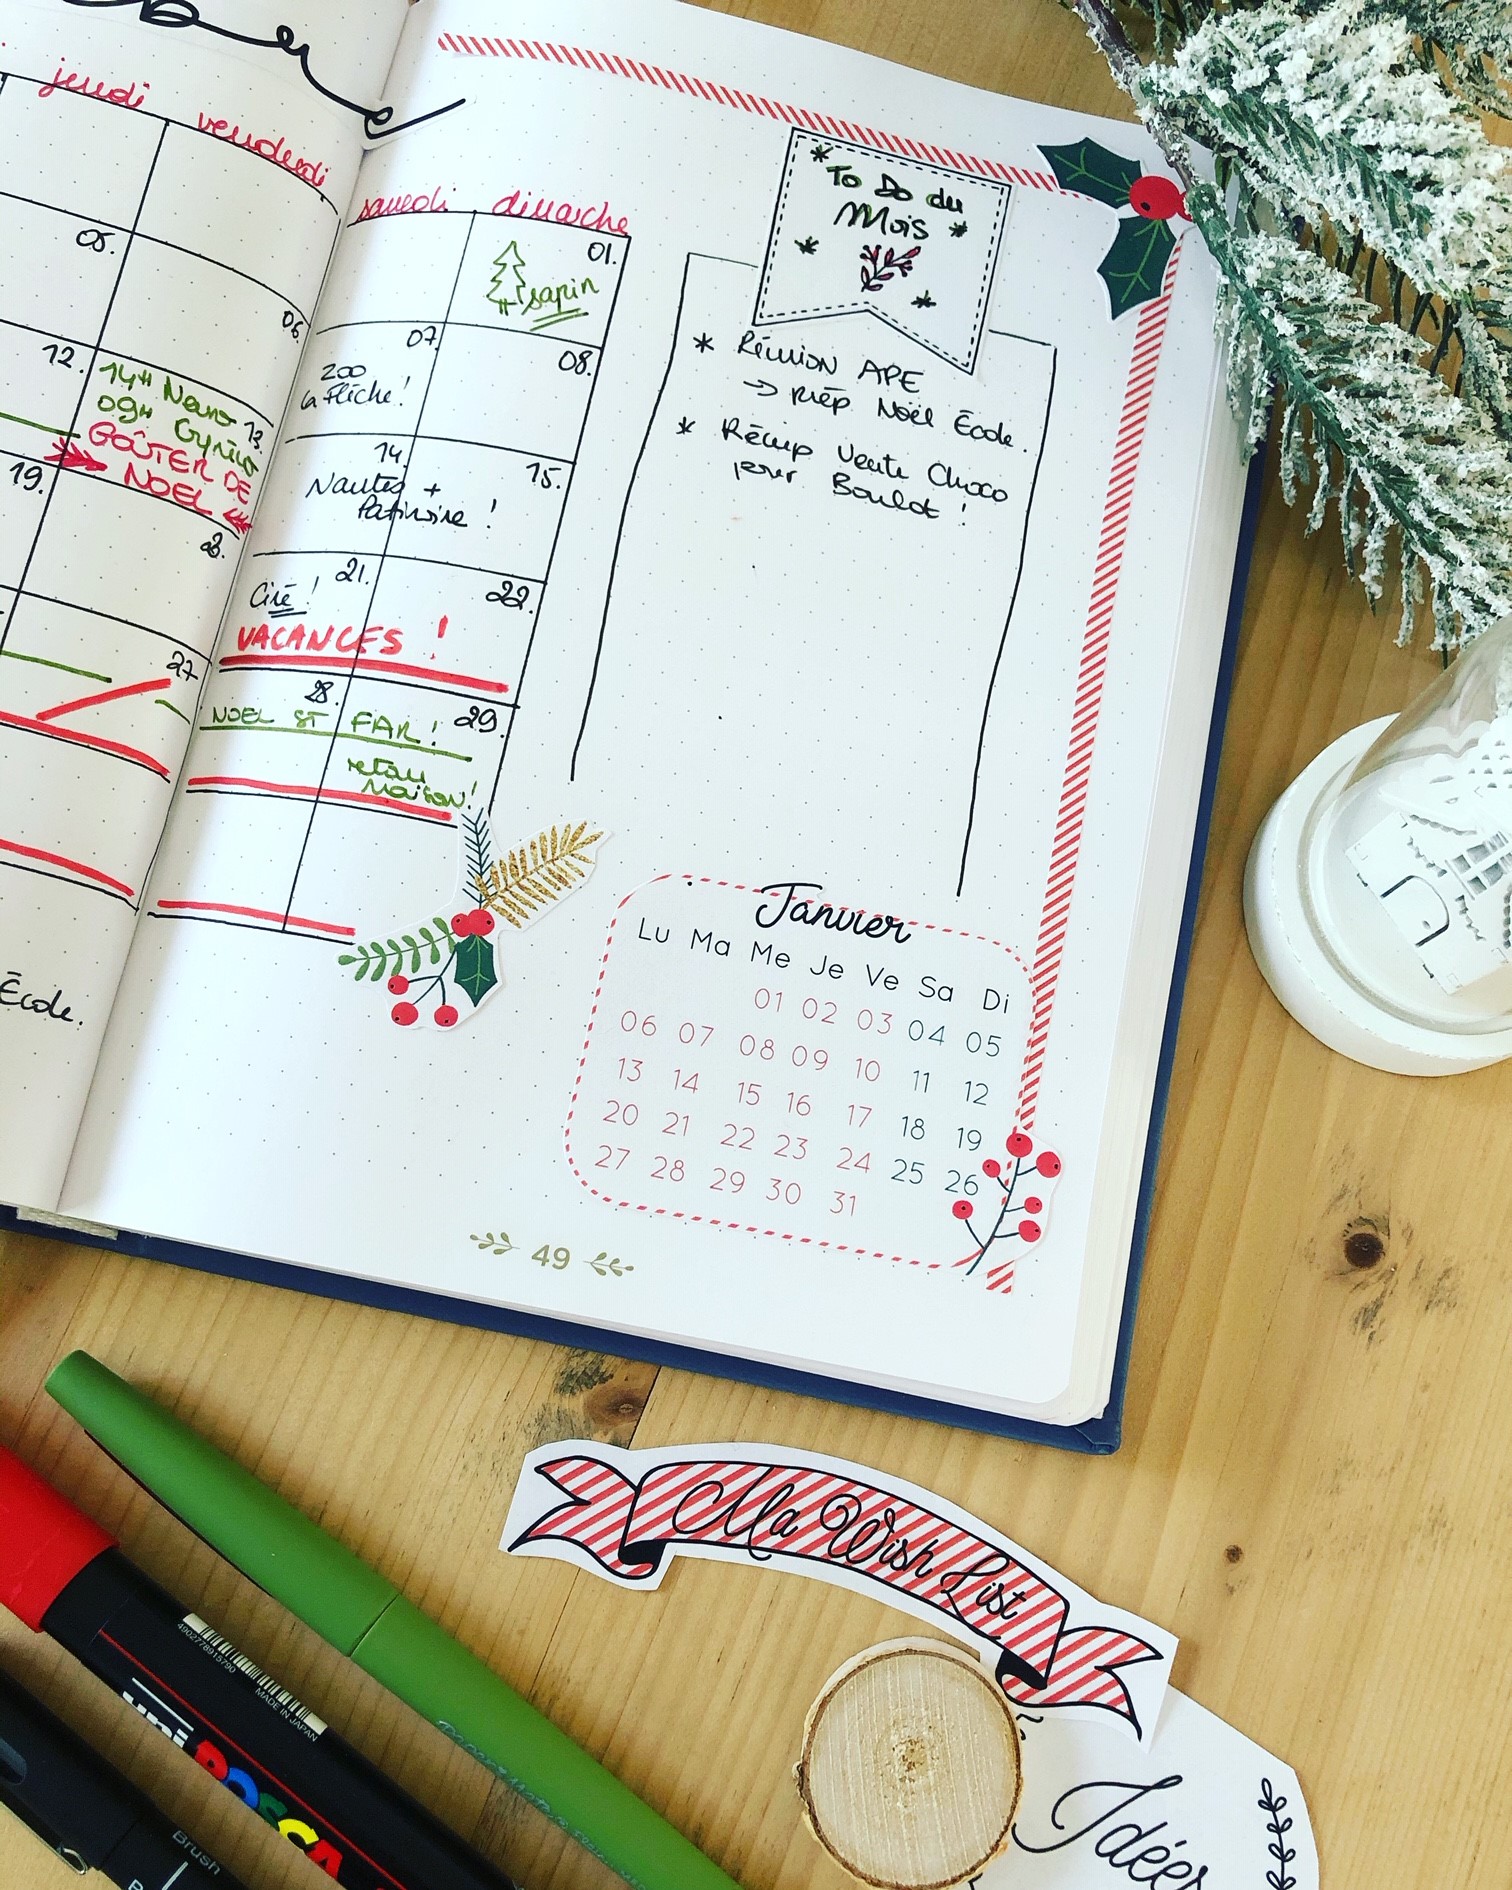 jeudi vendredi samedi dimanche
01.
sapin
05. 06. 07. 08.
200
la Flèche !
12. 13. 14. 15.
14H Nano
09H Gynéco
GOÛTER DE
NOEL
Nantes +
Patinoire !
19. 21. 22.
Ciré !
VACANCES !
27 28. 29.
NOEL ST FAR !
retour
Maison !
École.
To Do du
Mois
* Réunion APE
→ Prép Noël École.
* Récup Vente Choco
pour Boulot !
Janvier
Lu Ma Me Je Ve Sa Di
01 02 03 04 05
06 07 08 09 10 11 12
13 14 15 16 17 18 19
20 21 22 23 24 25 26
27 28 29 30 31
49
Ma Wish List
Idées
4902778915790
MADE IN JAPAN
uni POSCA
Brush